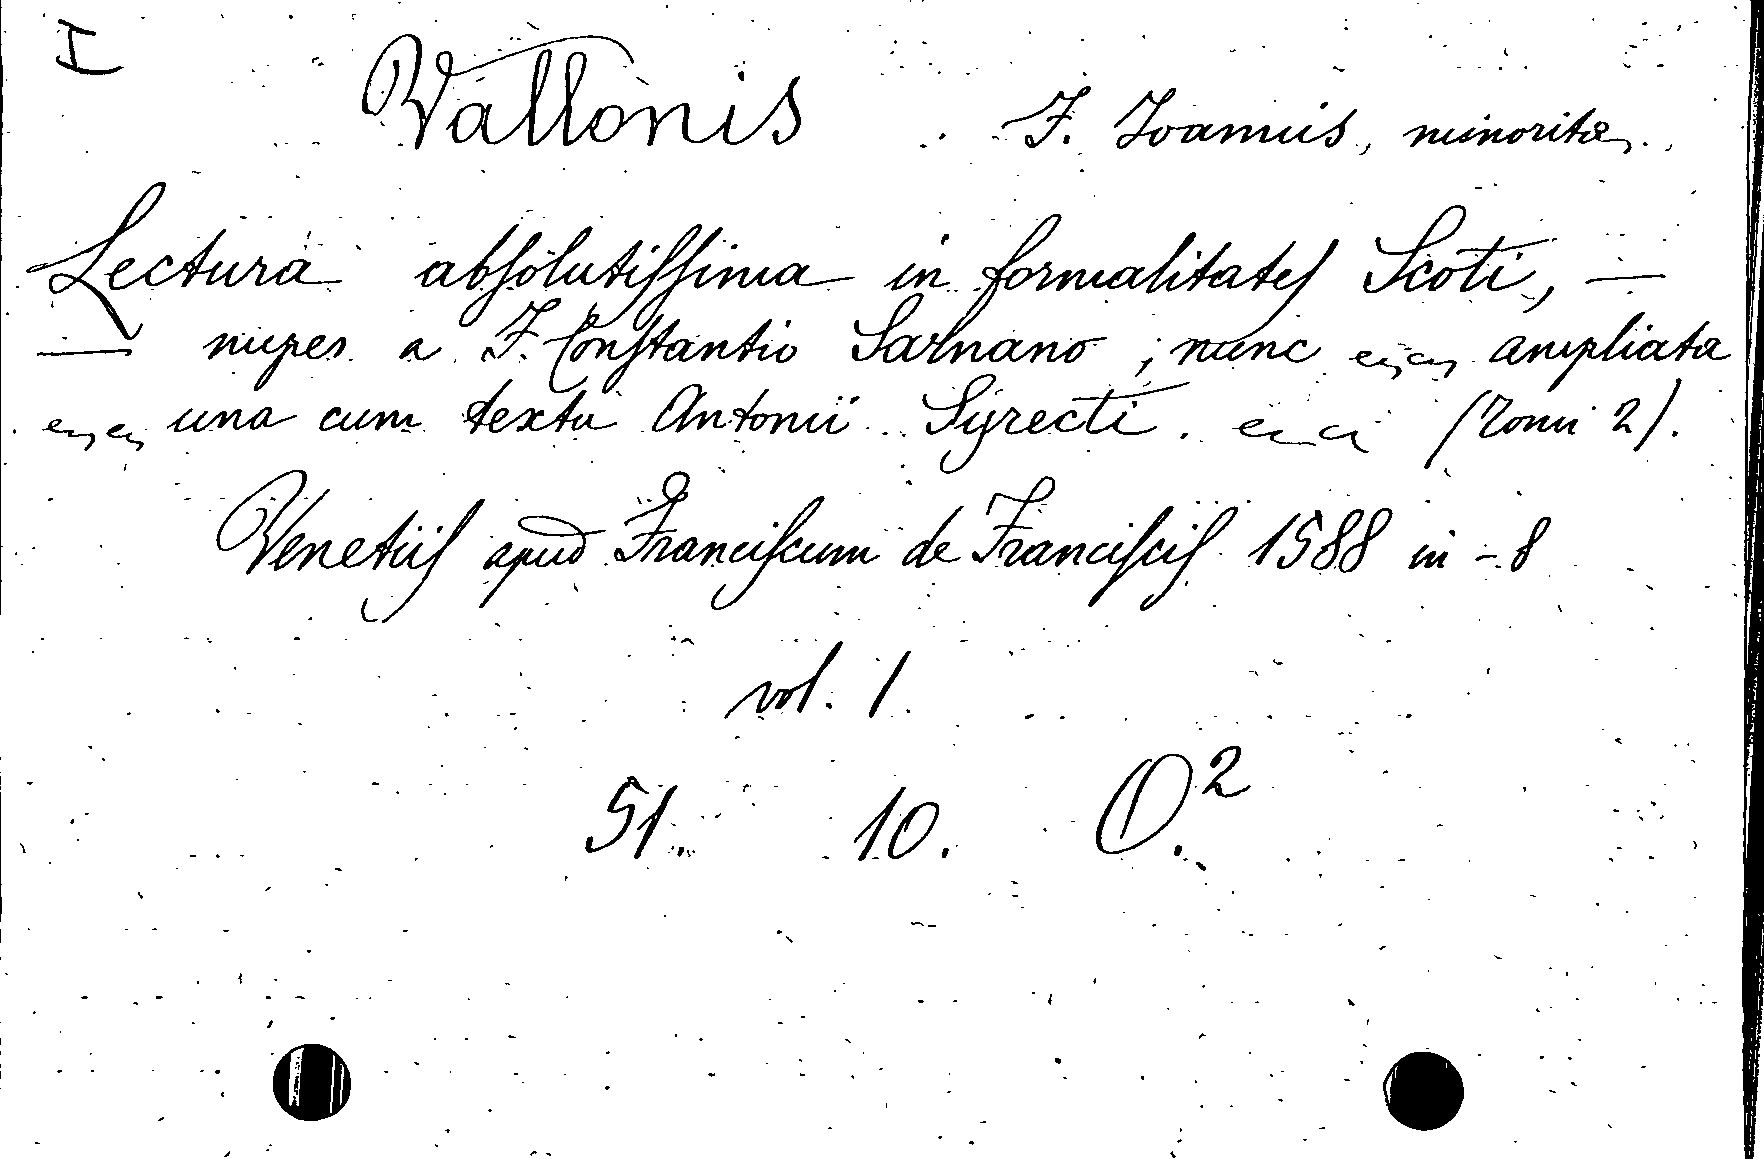 I
Vallonis F. Ioannis, minoritæ.
Lectura abſolutiſſima in formalitateſ Scoti, —
— nuper a F. Conſtantio Sarnano; nunc ampliata
una cum textu Antonii Syrecti. (Tomi 2).
Venetiiſ apud Franciſcum de Franciſciſ 1588 in-8
vol. 1.
51. 10. O.²